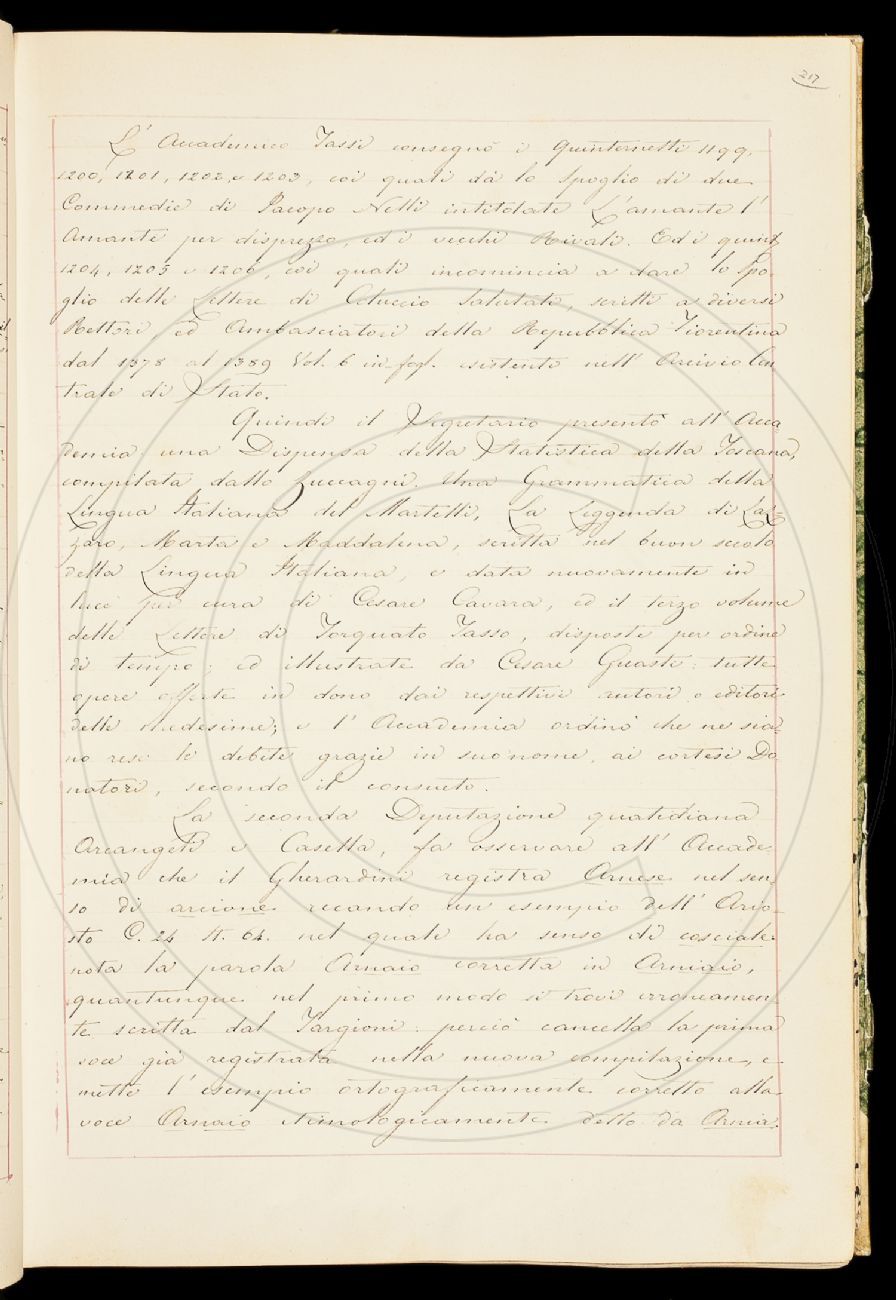 217
L'Accademico Tassi consegnò i Quinternetti 1199.
1200, 1201, 1202, e 1203, coi quali dà lo Spoglio di due
Commedie di Jacopo Nelli intitolate L'amante l'
Amante per disprezzo, ed i vecchi Rivali. Ed i quint.
1204, 1205 e 1206, coi quali incomincia a dare lo Spo-
glio delle Lettere di Coluccio Salutati, scritte a diversi
Rettori, ed Ambasciatori della Repubblica Fiorentina
dal 1378 al 1389 Vol. 6 in fogl. esistente nell' Arcivio Cen
trale di Stato.
Quindi il Segretario presentò all' Acca
demia una Dispensa della Statistica della Toscana,
compilata dallo Zuccagni. Una Grammatica della
Lingua Italiana del Martelli, La Leggenda di Laz-
zaro, Marta e Maddalena, scritta nel buon secolo
della Lingua Italiana, e data nuovamente in
luce per cura di Cesare Cavara, ed il terzo volume
delle Lettere di Torquato Tasso, disposte per ordine
di tempo; ed illustrate da Cesare Guasti: tutte
opere offerte in dono dai respettivi autori o editori
delle medesime; e l' Accademia ordinò che ne sia-
no rese le debite grazie in suo nome, ai cortesi Do
natori, secondo il consueto.
La seconda Deputazione quatidiana
Arcangeli e Casella, fa osservare all' Accade-
mia che il Gherardini registra Arnese nel sen-
so di arcione recando un esempio dell' Ario-
sto C. 24 st. 64. nel quale ha senso di cosciale
nota la parola Arnaio corretta in Arniaio,
quantunque nel primo modo si trovi erroneamen-
te scritta dal Targioni: perciò cancella la prima
voce già registrata nella nuova compilazione, e
mette l' esempio ortograficamente corretto alla
voce Arniaio etimologicamente detto da Arnia.